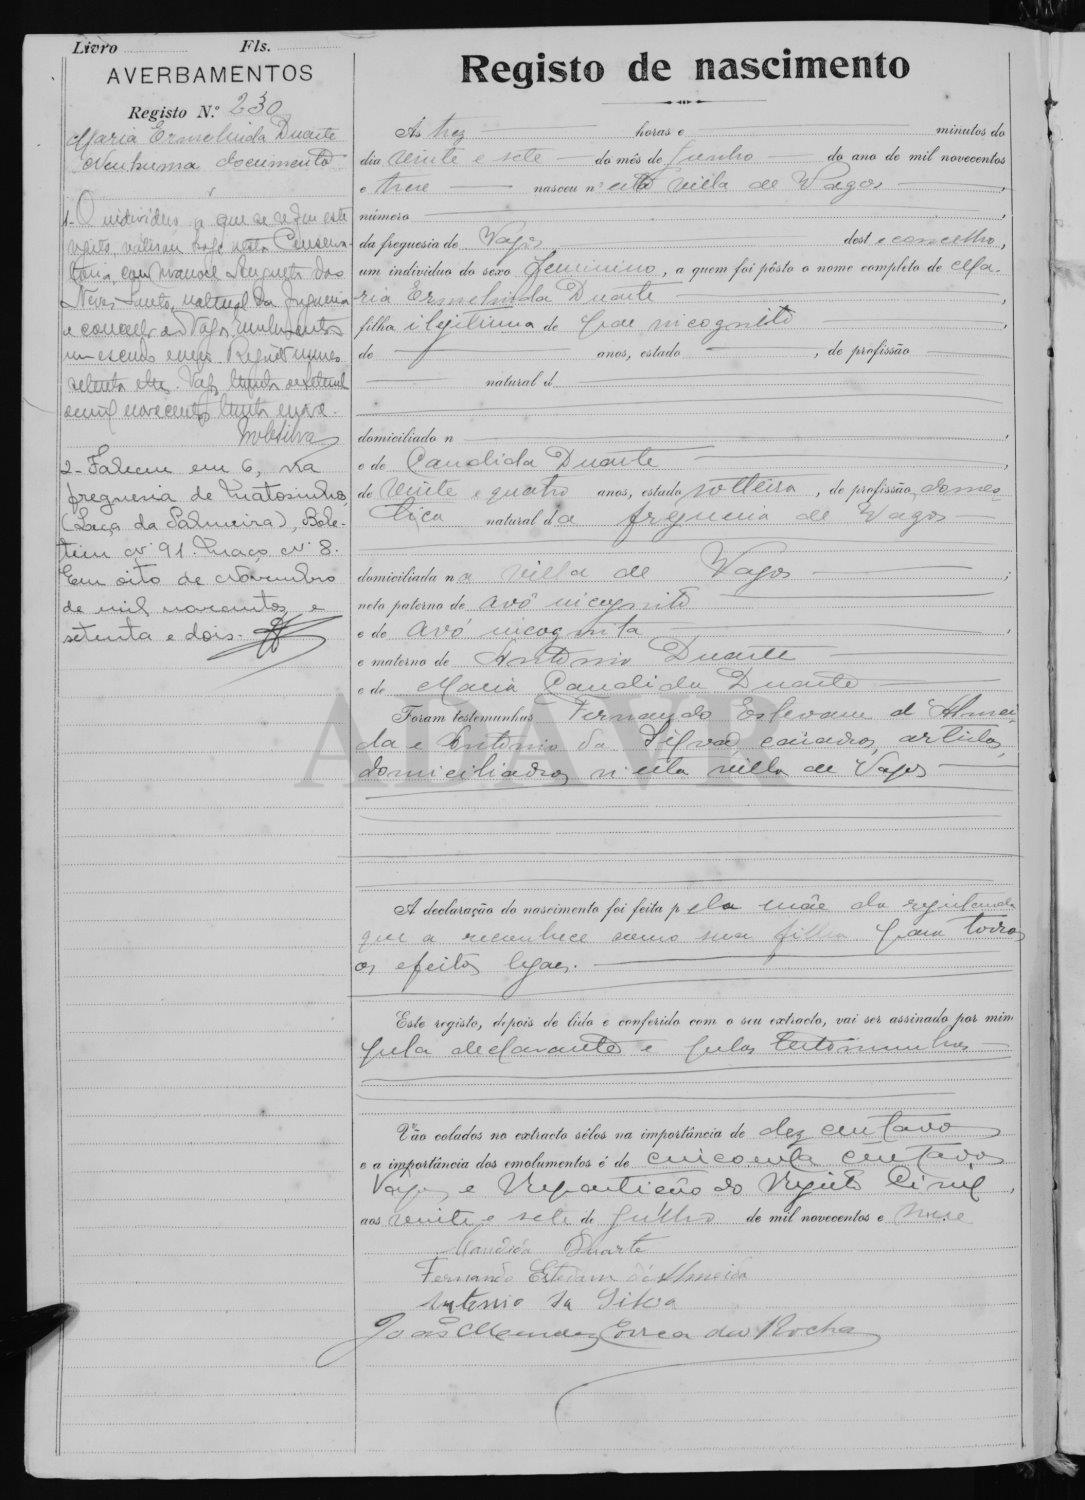 Livro Fls.
AVERBAMENTOS
Registo N.º 230
Maria Ermelinda Duarte
Nenhuma documento
1- O individuo a que se refere este
registo, hoje nesta Conserva-
toria, com Manuel Augusto das
Neves natural da freguesia
e concelho de Vagos. Emolumentos
um escudo Registo numero
setenta Vagos, trinta
de mil novecentos trinta e nove.
2- Faleceu em 6, na
freguesia de Matosinhos
(Leça da Palmeira), Bole-
tim nº 91. Maço nº 8.
Em oito de Novembro
de mil novecentos e
setenta e dois.
Registo de nascimento
Ás trez horas e minutos do
dia vinte e sete do mês de Junho do ano de mil novecentos
e treze nasceu n'esta villa de Vagos ,
número ,
da freguesia de Vagos dest e concelho,
um individuo do sexo femenino, a quem foi pôsto o nome completo de Ma-
ria Ermelinda Duarte ,
filha ilegitima de pae incognito
de anos, estado , de profissão
natural d
domiciliado n ,
e de Candida Duarte ,
de vinte e quatro anos, estado solteira, de profissão domes-
tica natural da freguesia de Vagos
domiciliada na villa de Vagos ;
neto paterno de avô incognito
e de avó incognita ,
e materno de Antonio Duarte
e de Maria Candida Duarte
Foram testemunhas Fernando Estevam d'Almei-
da e Antonio da Silva, casados, artistas,
domiciliados n'esta villa de Vagos
ADAVR
A declaração do nascimento foi feita pela mãe da registanda
que a reconhece como sua filha para todos
os efeitos legaes.
Este registo, depois de lido e conferido com o seu extracto, vai ser assinado por mim
pela declarante e pelas testemunhas
Vão colados no extracto sêlos na importância de dez centavos
e a importância dos emolumentos é de cincoenta centavos
Vagos e Repartição do Registo Civil,
aos vinte e sete de Julho de mil novecentos e treze
Candida Duarte
Fernando Estevam d'Almeida
Antonio da Silva
João Mendes Correa da Rocha